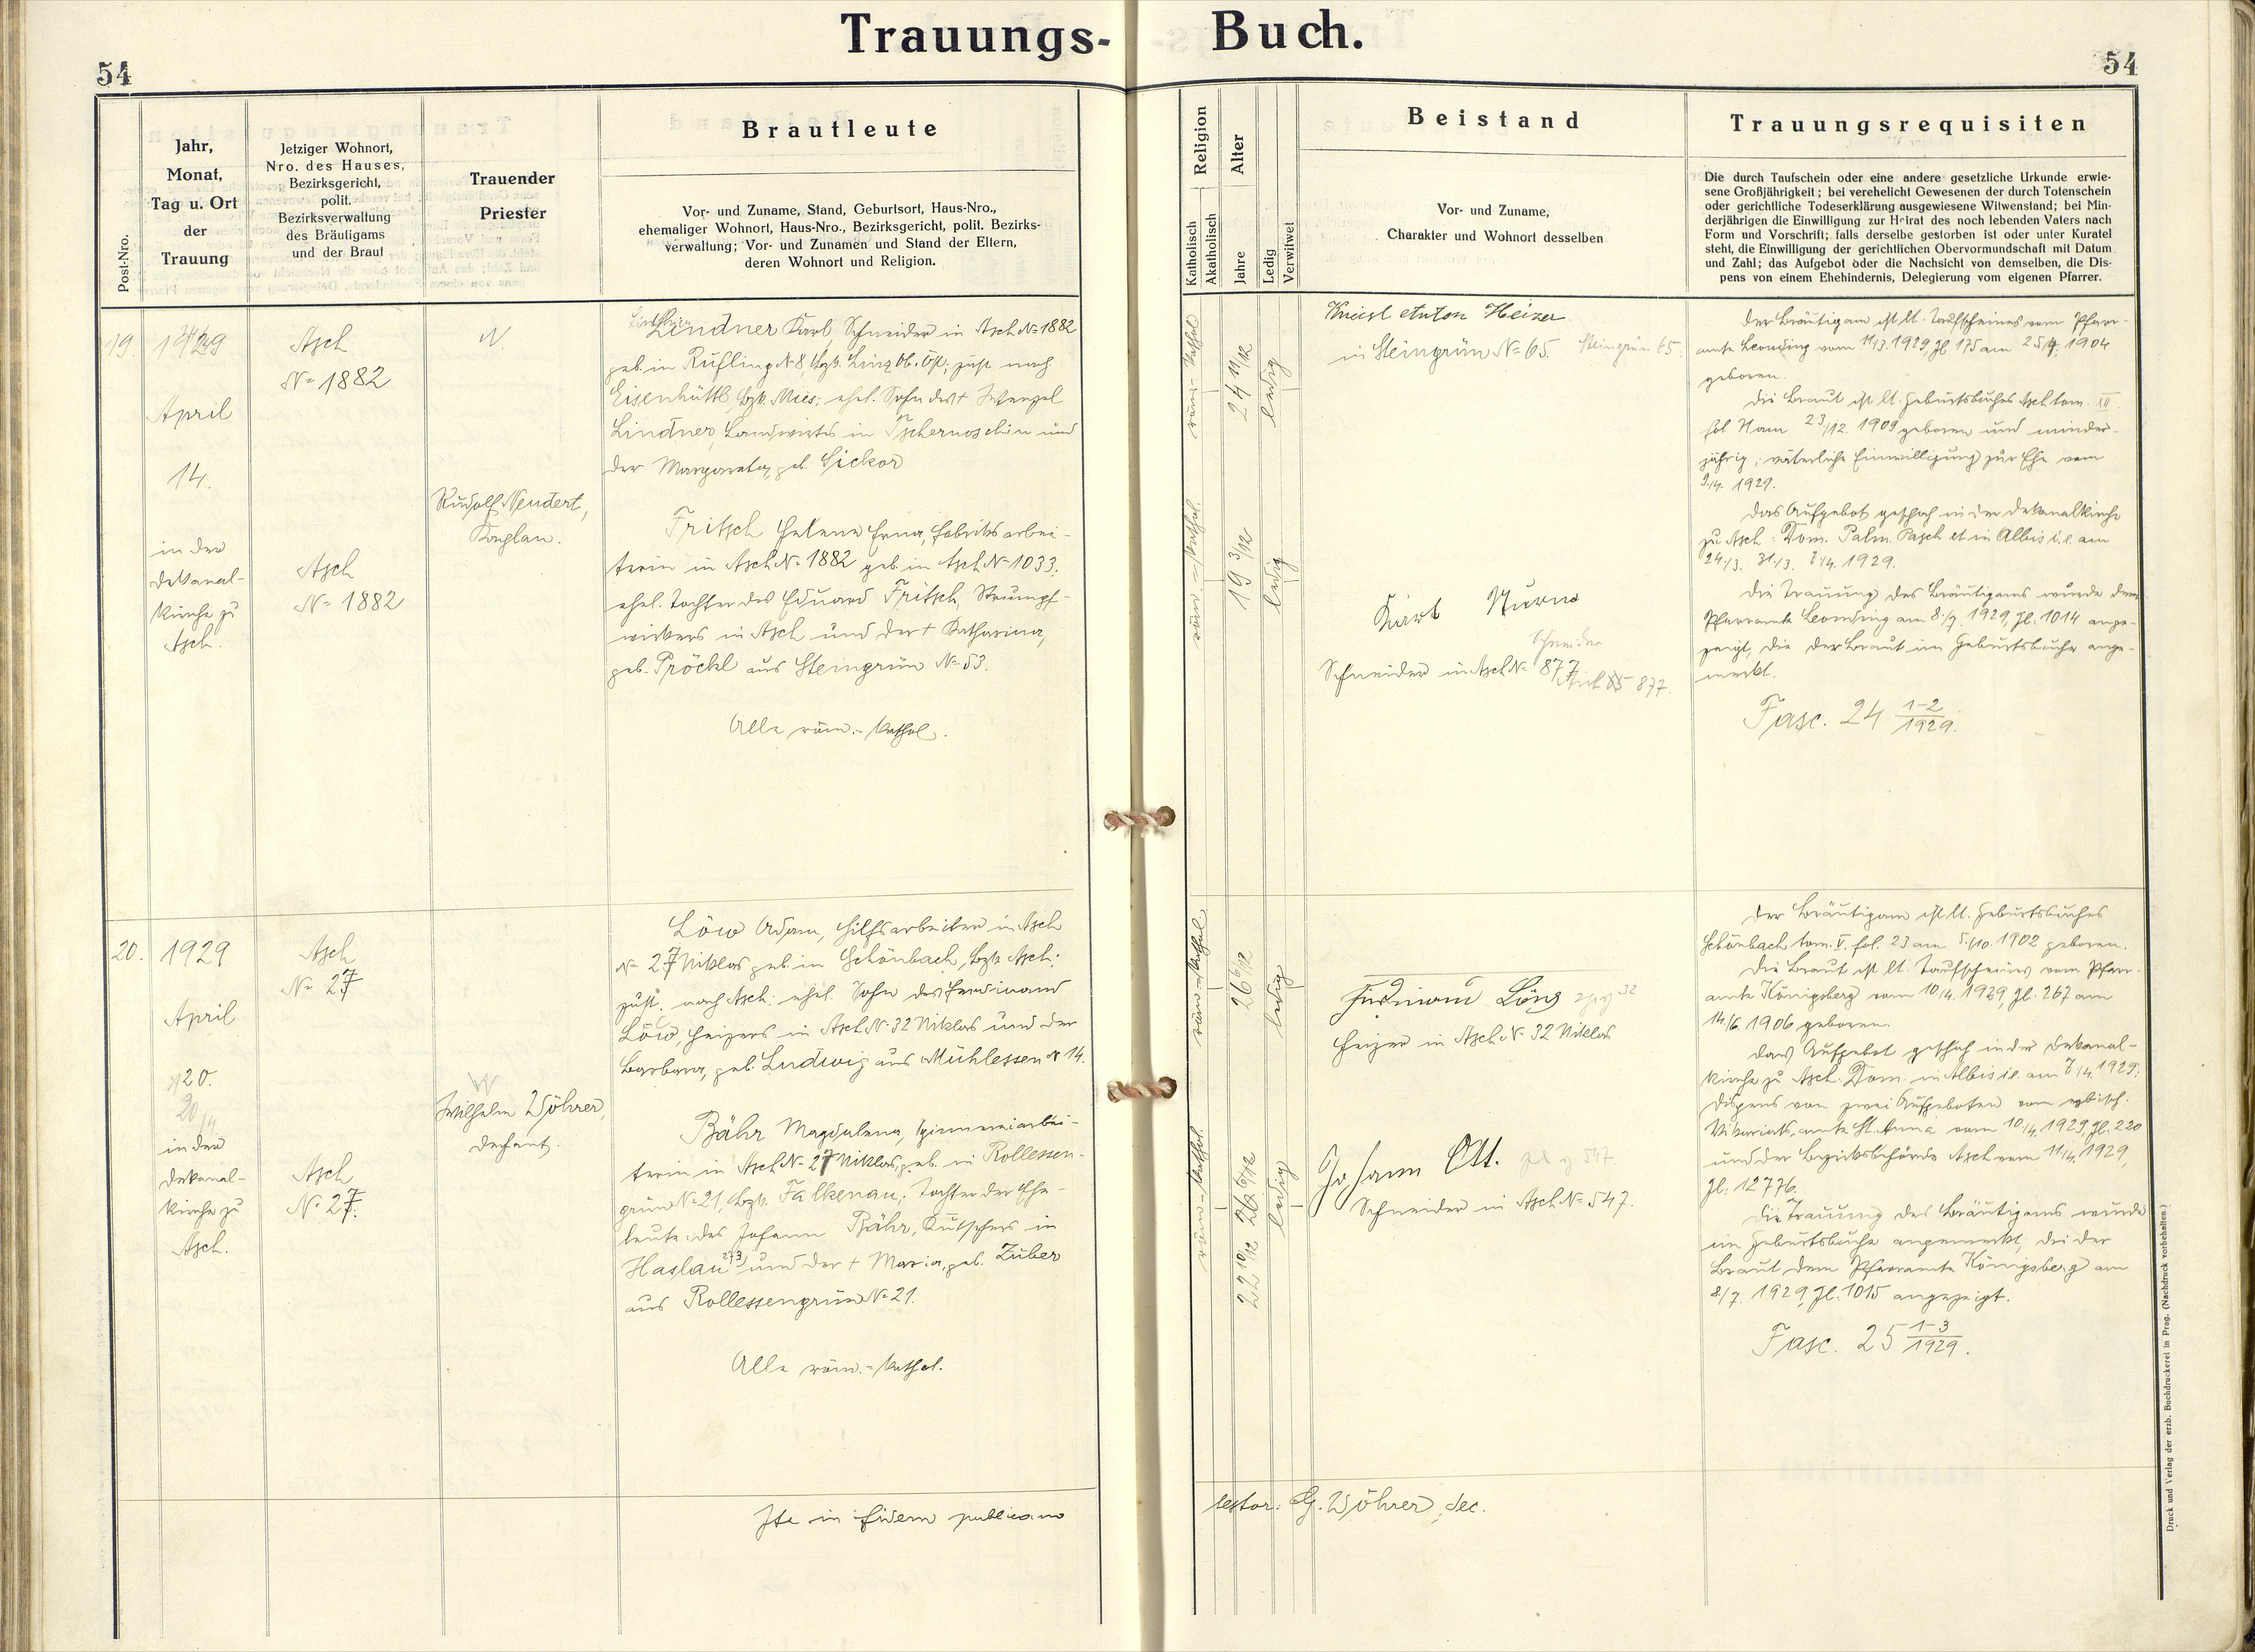 Trauungs- Buch.
54
54
Post-Nro.
Jahr,
Monat,
Tag u. Ort
der
Trauung
Jetziger Wohnort,
Nro. des Hauses,
Bezirksgericht,
polit.
Bezirksverwaltung
des Bräutigams
und der Braut
Trauender
Priester
Brautleute
Vor- und Zuname, Stand, Geburtsort, Haus-Nro.,
ehemaliger Wohnort, Haus-Nro., Bezirksgericht, polit. Bezirks-
verwaltung; Vor- und Zunamen und Stand der Eltern,
deren Wohnort und Religion.
Religion
Katholisch
Akatholisch
Alter
Jahre
Ledig
Verwitwet
Beistand
Vor- und Zuname,
Charakter und Wohnort desselben
Trauungsrequisiten
Die durch Taufschein oder eine andere gesetzliche Urkunde erwie-
sene Großjährigkeit; bei verehelicht Gewesenen der durch Totenschein
oder gerichtliche Todeserklärung ausgewiesene Witwenstand; bei Min-
derjährigen die Einwilligung zur Heirat des noch lebenden Vaters nach
Form und Vorschrift; falls derselbe gestorben ist oder unter Kuratel
steht, die Einwilligung der gerichtlichen Obervormundschaft mit Datum
und Zahl; das Aufgebot oder die Nachsicht von demselben, die Dis-
pens von einem Ehehindernis, Delegierung vom eigenen Pfarrer.
19.
1929
April
14.
in der
Dekanal-
kirche zu
Asch.
Asch
N= 1882
Asch
N= 1882
N.
Rudolf Nendert,
Kaplan.
Lindner Karl, Schneider in Asch N= 1882
geb. in Rufling N 8 Bzk. Linz Ob. Öst; zust. nach
Eisenhüttl, Bzk. Mies; ehel. Sohn des † Wenzel
Lindner, Landwirts in Tschernoschin und
der Margareta, geb. Sickor
Fritsch Helene Erna, Fabriksarbei-
terin in Asch N= 1882 geb. in Asch N= 1033;
ehel. Tochter des Eduard Fritsch, Strumpf-
wirkers in Asch und der † Katharina,
geb. Pröckl aus Steingrün N= 53.
Alle röm.-kathol.
röm-kathol
röm-kathol.
24 11/12
19 3/12
ledig
ledig
Kniesl Anton Heizer
in Steingrün N= 65. Steingrün 65.
Karl
Schneider
Schneider in Asch N= 877
Asch 877.
Der Bräutigam ist lt. Taufscheines vom Pfarr-
amte Leonding vom 11/3. 1929, Zl 175 am 25/4. 1904
geboren.
Die Braut ist lt. Geburtsbuches Asch tom. XII.
fol 11 am 23/12. 1909 geboren und minder-
jährig; väterliche Einwilligung zur Ehe vom
9/4. 1929.
Das Aufgebot geschah in der Dekanalkirche
zu Asch: Dom. Palm. Pasch et in Albis i. e. am
24./3. 31./3. 7/4. 1929.
Die Trauung des Bräutigams wurde dem
Pfarramte Leonding am 8./7. 1929, Zl. 1014 ange-
zeigt, die der Braut im Geburtsbuche ange-
merkt.
Fasc. 24 1-2/1929.
20.
1929
April
20.
20/4.
in der
Dekanal-
kirche zu
Asch.
Asch
N= 27
Asch
N= 27.
W
Wilhelm Wöhrer,
Dechant.
Löw Adam, Hilfsarbeiter in Asch
N= 27 Niklas geb. in Schönbach, Bzk. Asch;
zust. nach Asch; ehel. Sohn des Ferdinand
Löw, Heizers in Asch N= 32 Niklas und der
Barbara, geb. Ludwig aus Mühlessen N 14.
Bähr Magdalena, Spinnereiarbei-
terin in Asch N= 27 Niklas, geb. in Rollessen-
grün N= 21, Bzk. Falkenau; Tochter der Ehe-
leute: des Johann Bähr, Kutschers in
Haslau 273 und der † Maria, geb. Zuber
aus Rollessengrün N= 21.
Alle röm.-kathol.
röm-kathol
röm-kathol.
26 6/12
22 10/12
ledig
ledig
Ferdinand Löw 32
Heizer in Asch N= 32 Niklas
Johann Ott. 547.
Schneider in Asch N= 547.
Der Bräutigam ist lt. Geburtsbuches
Schönbach tom. V. fol. 23 am 5./10. 1902 geboren.
Die Braut ist lt. Taufscheines vom Pfarr-
amte Königsberg vom 10/4. 1929, Zl. 267 am
14/6. 1906 geboren.
Das Aufgebot geschah in der Dekanal-
kirche zu Asch: Dom. in Albis i.e. am 7/4. 1929;
Dispens von zwei Aufgeboten vom erzbisch.
Vikariatsamte St. Anna vom 10/4. 1929, Zl. 220
und der Bezirksbehörde Asch vom 11/4. 1929,
Zl. 12776.
Die Trauung des Bräutigams wurde
im Geburtsbuche angemerkt, die der
Braut dem Pfarramte Königsberg am
8/7. 1929, Zl. 1015 angezeigt.
Fasc. 25 1-3/1929.
Ita in fidem publicam
testor: G. Wöhrer, dec.
Druck und Verlag der erzb. Buchdruckerei in Prag. (Nachdruck vorbehalten.)